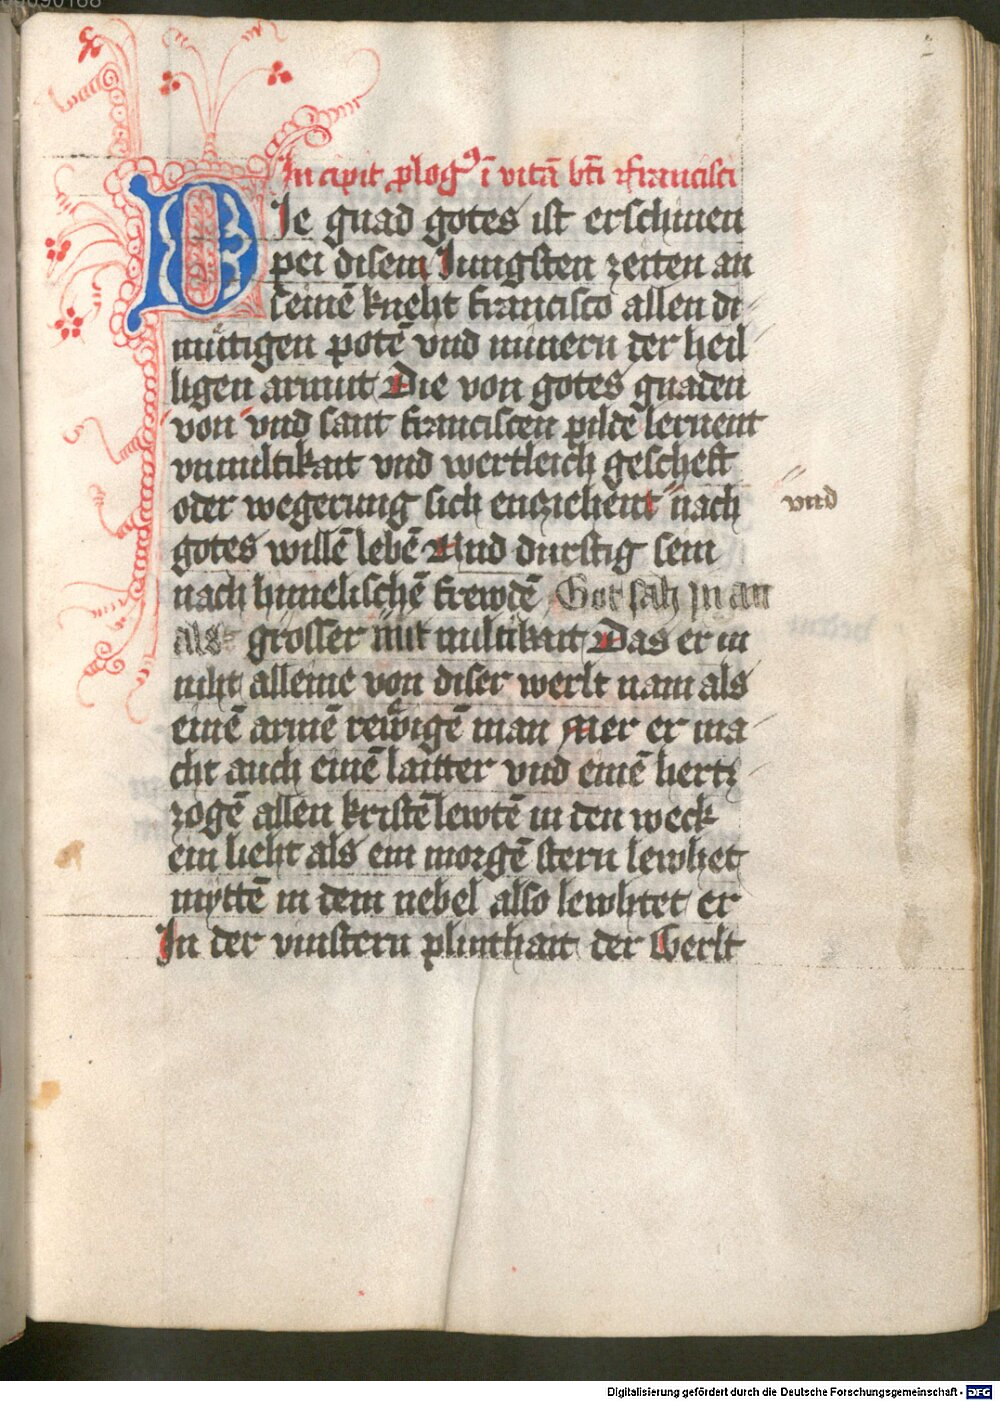 In cipit plogꝰ ī vitā bti francisci
DIe gnad gotes ist erschinen
pei disem Jungsten zeiten an
seinē kneht francisco allen di
mütigen potē vnd minnern der heil
ligen armut Die von gotes gnaden
von vnd sant franciscen pilde lernent
vnmiltikait vnd wertleich gescheft
oder wegerung sich enziehent nach
vnd
gotes willē lebē Und durstig sein
nach himelischē frewdē Got sah in an
als grosser mit miltikait Das er in
niht alleine von diser werlt nam als
einē armē rewigē man Mer er ma
cht auch einē laitter vnd einē hertz
zogē allen kristē lewtē in den weck
ein lieht als ein morgē stern lewhet
myttē in dem nebel also lewhtet er
In der vinstern plinthait der Werlt
Digitalisierung gefördert durch die Deutsche Forschungsgemeinschaft - DFG